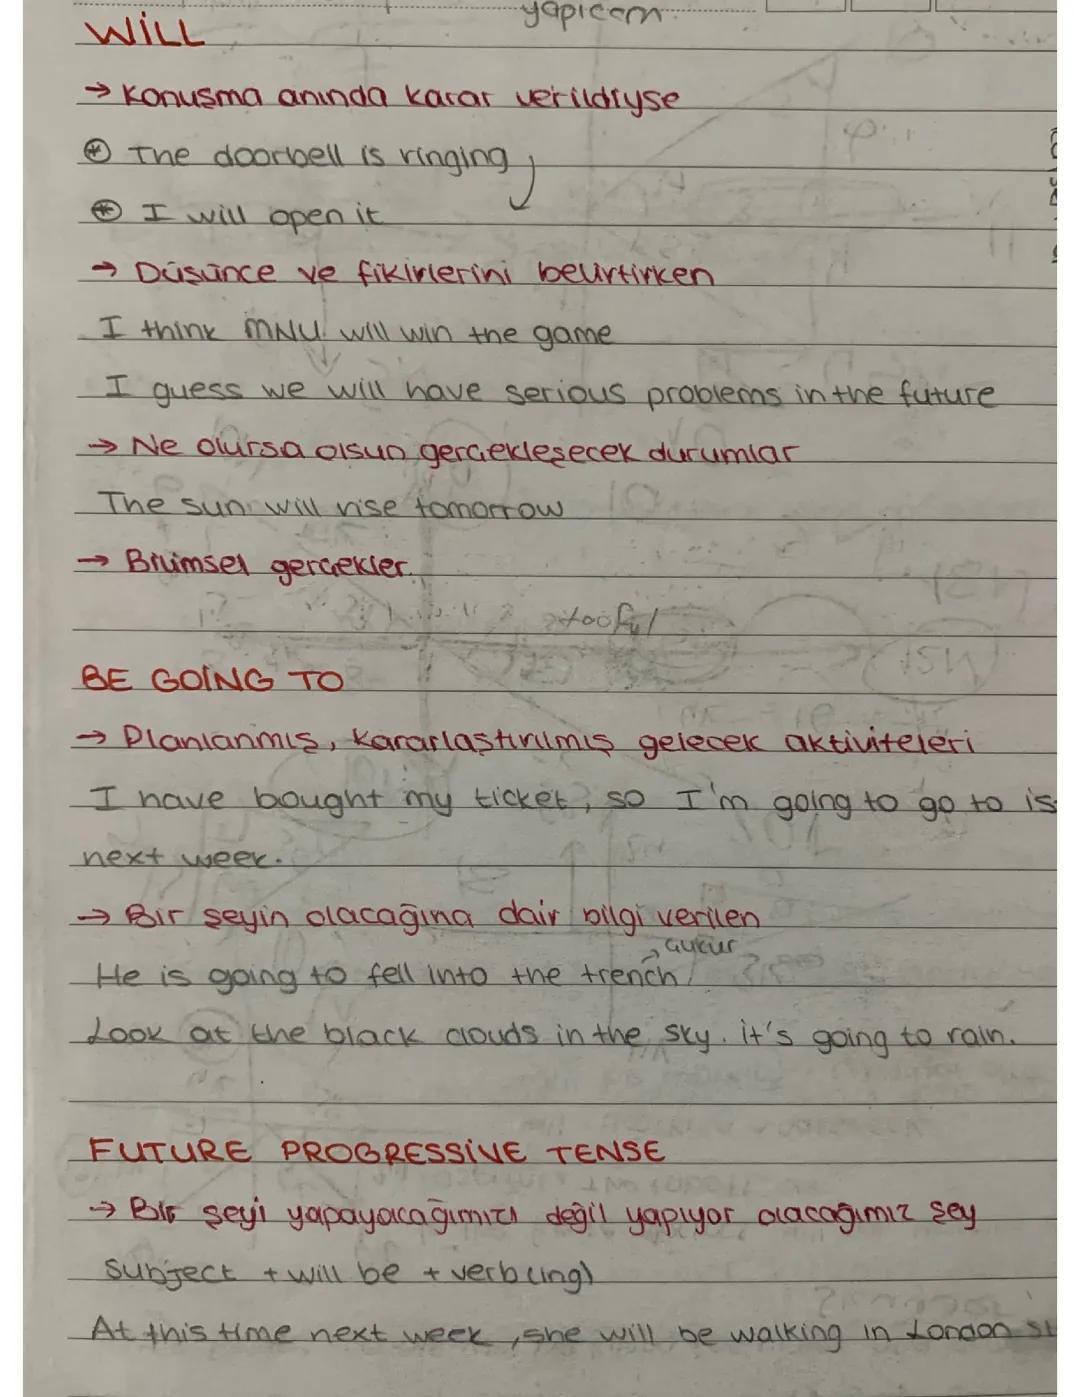 yapıcam
WİLL
→ Konuşma anında karar verildiyse
⊛ The doorbell is ringing
⊛ I will open it
→ Düşünce ve fikirlerini belirtirken
I think MNU will win the game
I guess we will have serious problems in the future
→ Ne olursa olsun gerçekleşecek durumlar
The sun will rise tomorrow
→ Bilimsel gerçekler.
BE GOİNG TO
→ Planlanmış, kararlaştırılmış gelecek aktiviteleri
I have bought my ticket, so I'm going to go to is
next week.
→ Bir şeyin olacağına dair bilgi verilen
→ çukur
He is going to fell into the trench
Look at the black clouds in the sky. it's going to rain.
FUTURE PROGRESSİVE TENSE
→ Bir şeyi yapayacağımızı değil yapıyor olacağımız şey
Subject + will be + verb(ing)
At this time next week, she will be walking in London st